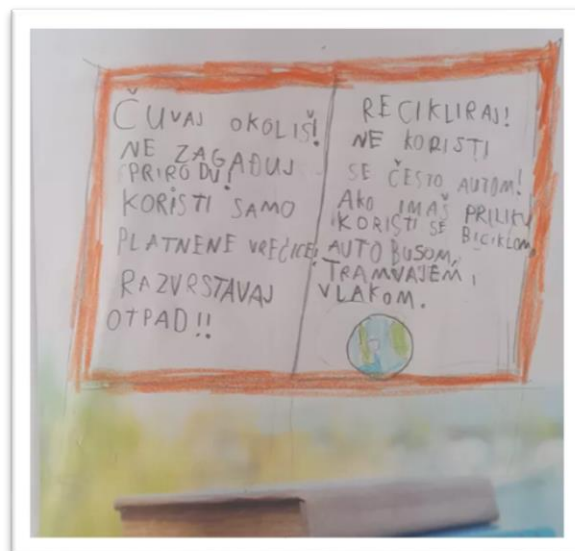 ČUVAJ OKOLIŠ!
NE ZAGAĐUJ
PRIRODU!
KORISTI SAMO
PLATNENE VREĆICE!
RAZVRSTAVAJ
OTPAD!!
RECIKLIRAJ!
NE KORISTI
SE ČESTO AUTOM!
AKO IMAŠ PRILIKU
KORISTI SE BICIKLOM,
AUTOBUSOM,
TRAMVAJEM,
VLAKOM.